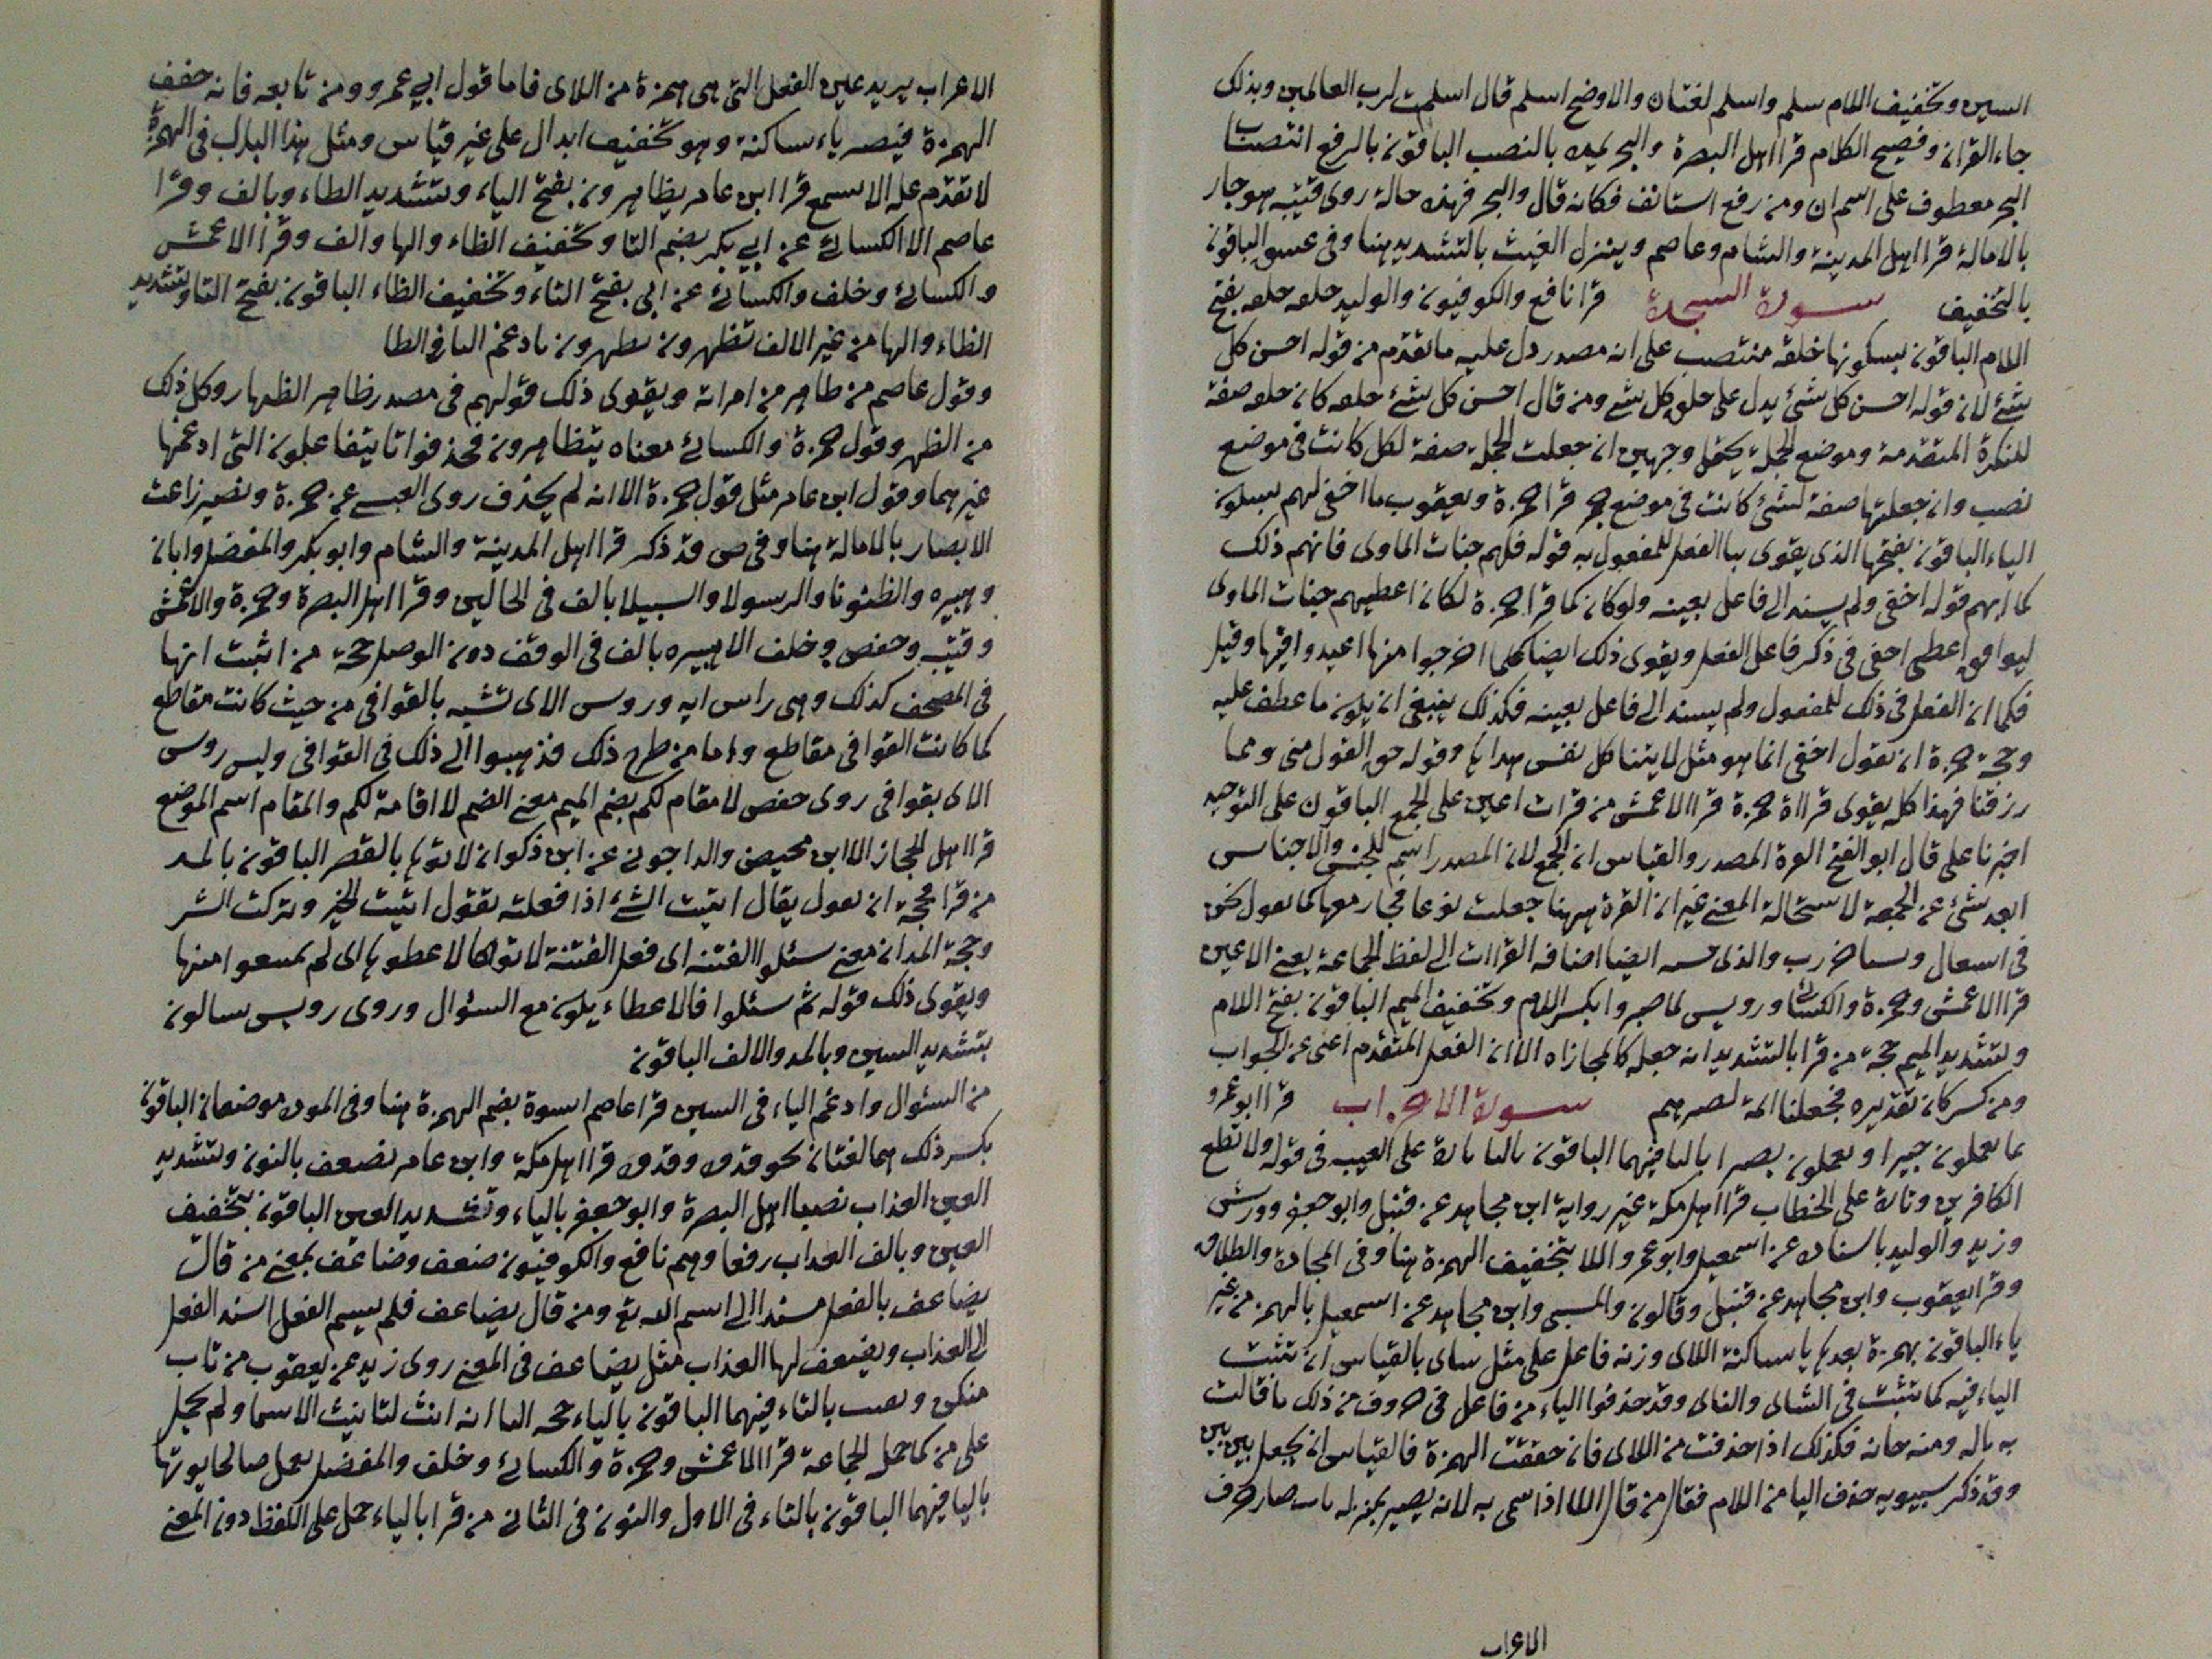 السين وتخفيف اللام سلم واسلم لغتان والاوضح اسلم قال اسلمت لرب العالمين وبذلك
جاء القران وفصيح الكلام قرا اهل البصرة والبحر يمده بالنصب الباقون بالرفع انتصب
البحر معطوف على اسم ان ومن رفع استانف فكانه قال والبحر فهذه حالة روى قتيبه هو جار
بالامالة قرا اهل المدينة والشام وعاصم وينزل الغيث بالتشديد هنا وفي عسق الباقون
بالتخفيف سورة السجدة قرا نافع والكوفيون والوليد خلقه خلقه بفتح
اللام الباقون بسكونها خلقه منتصب على انه مصدر دل عليه ما تقدم من قوله احسن كل
شئ لان قوله احسن كل شئ يدل على خلق كل شئ ومن قال احسن كل شئ خلقه كان خلقه صفة
للنكرة المتقدمة وموضع الجملة يحتمل وجهين ان جعلت الجملة صفة لكل كانت في موضع
نصب وان جعلتها صفة لشئ كانت في موضع جر قرا حمزة ويعقوب ما اخفي لهم بسكون
الياء الباقون بفتحها الذي يقوى بنا الفعل للمفعول به قوله فلهم جنات الماوى فانهم ذلك
كما ابهم قوله اخفى ولم يسند الى فاعل بعينه ولو كان كما قرا حمزة لكان اعطيهم جنات الماوى
ليوافق اعطى اخفى في ذكر فاعل الفعل ويقوى ذلك ايضا كلما اخرجوا منها اعيدوا فيها وقيل
فكما ان الفعل في ذلك للمفعول ولم يسند الى فاعل بعينه فكذلك ينبغي ان يكون ما عطف عليه
وحجة حمزة ان نقول اخفى انما هو مثل لاتينا كل نفس هداها وقوله حق القول مني ومما
رزقنا فهذا كله يقوى قراة حمزة قرا الاعمش من قرات اعين على الجمع الباقون على التوحيد
اخبرنا على قال ابو الفتح القرة المصدر والقياس ان الجمع لان المصدر اسم للجنس والاجناس
ابعد شئ عن الجمعة لاستحالة المعنى غير ان القرة ههنا جعلت نوعا فجاز معها كما يقول نحن
في اشغال وبيننا حرب والذي حسنه ايضا اضافة القراات الى لفظ الجماعة يعني الاعين
قرا الاعمش وحمزة والكسائي ورويس لما صبروا بكسر اللام وتخفيف الميم الباقون بفتح اللام
وتشديد الميم حجة من قرا بالتشديد انه جعله كالمجازاه الا ان الفعل المتقدم اغنى عن الجواب
ومن كسر كان تقديره فجعلنا ائمة لصبرهم سورة الاحزاب قرا ابو عمرو
بما يعملون خبيرا ويعملون بصيرا باليا فيهما الباقون بالتا بالياء على الغيب في قوله ولا تطع
الكافرين وبالتا على الخطاب قرا اهل مكة غير رواية ابن مجاهد عن قنبل وابو جعفر وورش
وزيد والوليد باسناده عن اسمعيل وابو عمرو اللا بتخفيف الهمزة هنا وفي المجادلة والطلاق
وقرا يعقوب وابن مجاهد عن قنبل وقالون والمسيبي وابن مجاهد عن اسمعيل بالهمز من غير
ياء الباقون بهمزة بعدها يا ساكنة اللاى وزنه فاعل على مثل ساى بالقياس ان تثبت
الياء فيه كما تثبت في الشاى والناى وقد حذفوا الياء من فاعل في حروف من ذلك ما قالت
به باله ومنه حانه فكذلك اذا حذفت من اللاى فان حققت الهمزة فالقياس ان يجعل بين بين
وقد ذكر سيبويه حذف اليا من اللام فقال من قال اللا اذا سمى به لانه يصير بمنزلة باب صار حرف
الاعراب
الاعراب يريد عين الفعل التي هى همزة من اللاى فاما قول ابي عمرو ومن تابعه فانه خفف
الهمزة فيصير ياء ساكنة وهو تخفيف ابدال على غير قياس ومثل هذا البدل في الهمزة
لا تقدم عليه الا بسمع قرا ابن عامر يظاهرون بفتح الياء وبتشديد الظاء وبالف وقرا
عاصم الا الكسائي عن ابي بكر بضم التا وتخفيف الظاء والها والف وقرا الاعمش
والكسائى وخلف والكسائي عن ابى بفتح التاء وتخفيف الظاء الباقون بفتح التا وبتشديد
الظاء والها من غير الالف تظهرون يتظهرون بادغم التا في الظا
وقول عاصم من ظاهر من امراته ويقوى ذلك قولهم في مصدر ظاهر الظهار وكل ذلك
من الظهر وقول حمزة والكسائى معناه يتظاهرون فحذفوا تا يتفاعلون التي ادغمها
غيرهما وقول ابن عامر مثل قول حمزة الا انه لم يحذف روى العبسى عن حمزة ونصير زاغت
الابصار بالامالة هنا وفى ص قد ذكر قرا اهل المدينة والشام وابو بكر والمفضل وابان
وهبيره والظنونا والرسولا والسبيلا بالف فى الحالين وقرا اهل البصرة وحمزة والاعمش
وقتيبه وحفص وخلف الا هبيره بالف في الوقف دون الوصل حجة من اثبت انها
في المصحف كذلك وهى راس ايه وروس الاى تشبه بالقوافي من حيث كانت مقاطع
كما كانت القوافى مقاطع واما من طرح ذلك فذهبوا الى ذلك في القوافى وليس روس
الاى بقوافى روى حفص لا مقام لكم بضم الميم معنى الضم لا اقامة لكم والمقام اسم الموضع
قرا اهل الحجاز الا ابن محيصن والداجوني عن ابن ذكوان لاتوها بالقصر الباقون بالمد
من قرا فحجة ان نقول يقال اتيت الشئ اذا فعلته تقول اتيت الخير وتركت الشر
وحجة المد ان معنى سئلوا الفتنه اى فعل الفتنة لاتوها كالاعطوها اى لم يمنعوا منها
ويقوى ذلك قوله ثم سئلوا فالاعطاء يكون مع السؤال وروى رويس يسالون
بتشديد السين وبالمد والالف الباقون
من السؤال وادغم الياء فى السين قرا عاصم اسوة بضم الهمزة هنا وفى المودة موضعان الباقون
بكسر ذلك هما لغتان نحو قدوة وقدوة قرا اهل مكة وابن عامر نضعف بالنون وتشديد
العين العذاب نصبا اهل البصرة وابو جعفر بالياء وتشديد العين الباقون بتخفيف
العين وبالف العذاب رفعا وهم نافع والكوفيون ضعف وضاعف بمعنى من قال
يضاعف بالفعل مسندا الى اسم الله تع ومن قال يضاعف فلم يسم الفعل اسند الفعل
الى العذاب ويضعف لها العذاب مثل يضاعف فى المعنى روى زيد عن يعقوب من تاب
منكن وتعمل بالتاء فيهما الباقون بالياء حجه التا انه انث لتانيث الاسما ولم يحمل
على من كما حمل الجماعة قرا الاعمش وحمزة والكسائى وخلف والمفضل يعمل صالحا يوتها
باليا فيهما الباقون بالتاء فى الاول والنون فى الثانى من قرا بالياء حمل على اللفظ دون المعنى